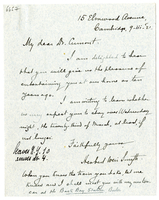 15 Elmwood Avenue,
Cambridge 9.III.21.
My dear Dr. Cumont,
I am delighted to hear
that you will give us the pleasure of
entertaining you at our house as two
years ago.
I am writing to learn whether
we may expect you to stay over Wednesday
night, the twenty-third of March, at head, if
not longer.
Faithfully yours,
Herbert Weir Smyth
When you know the train you take, let me
know and I shall meet you with my motor
car at the Back Bay Station